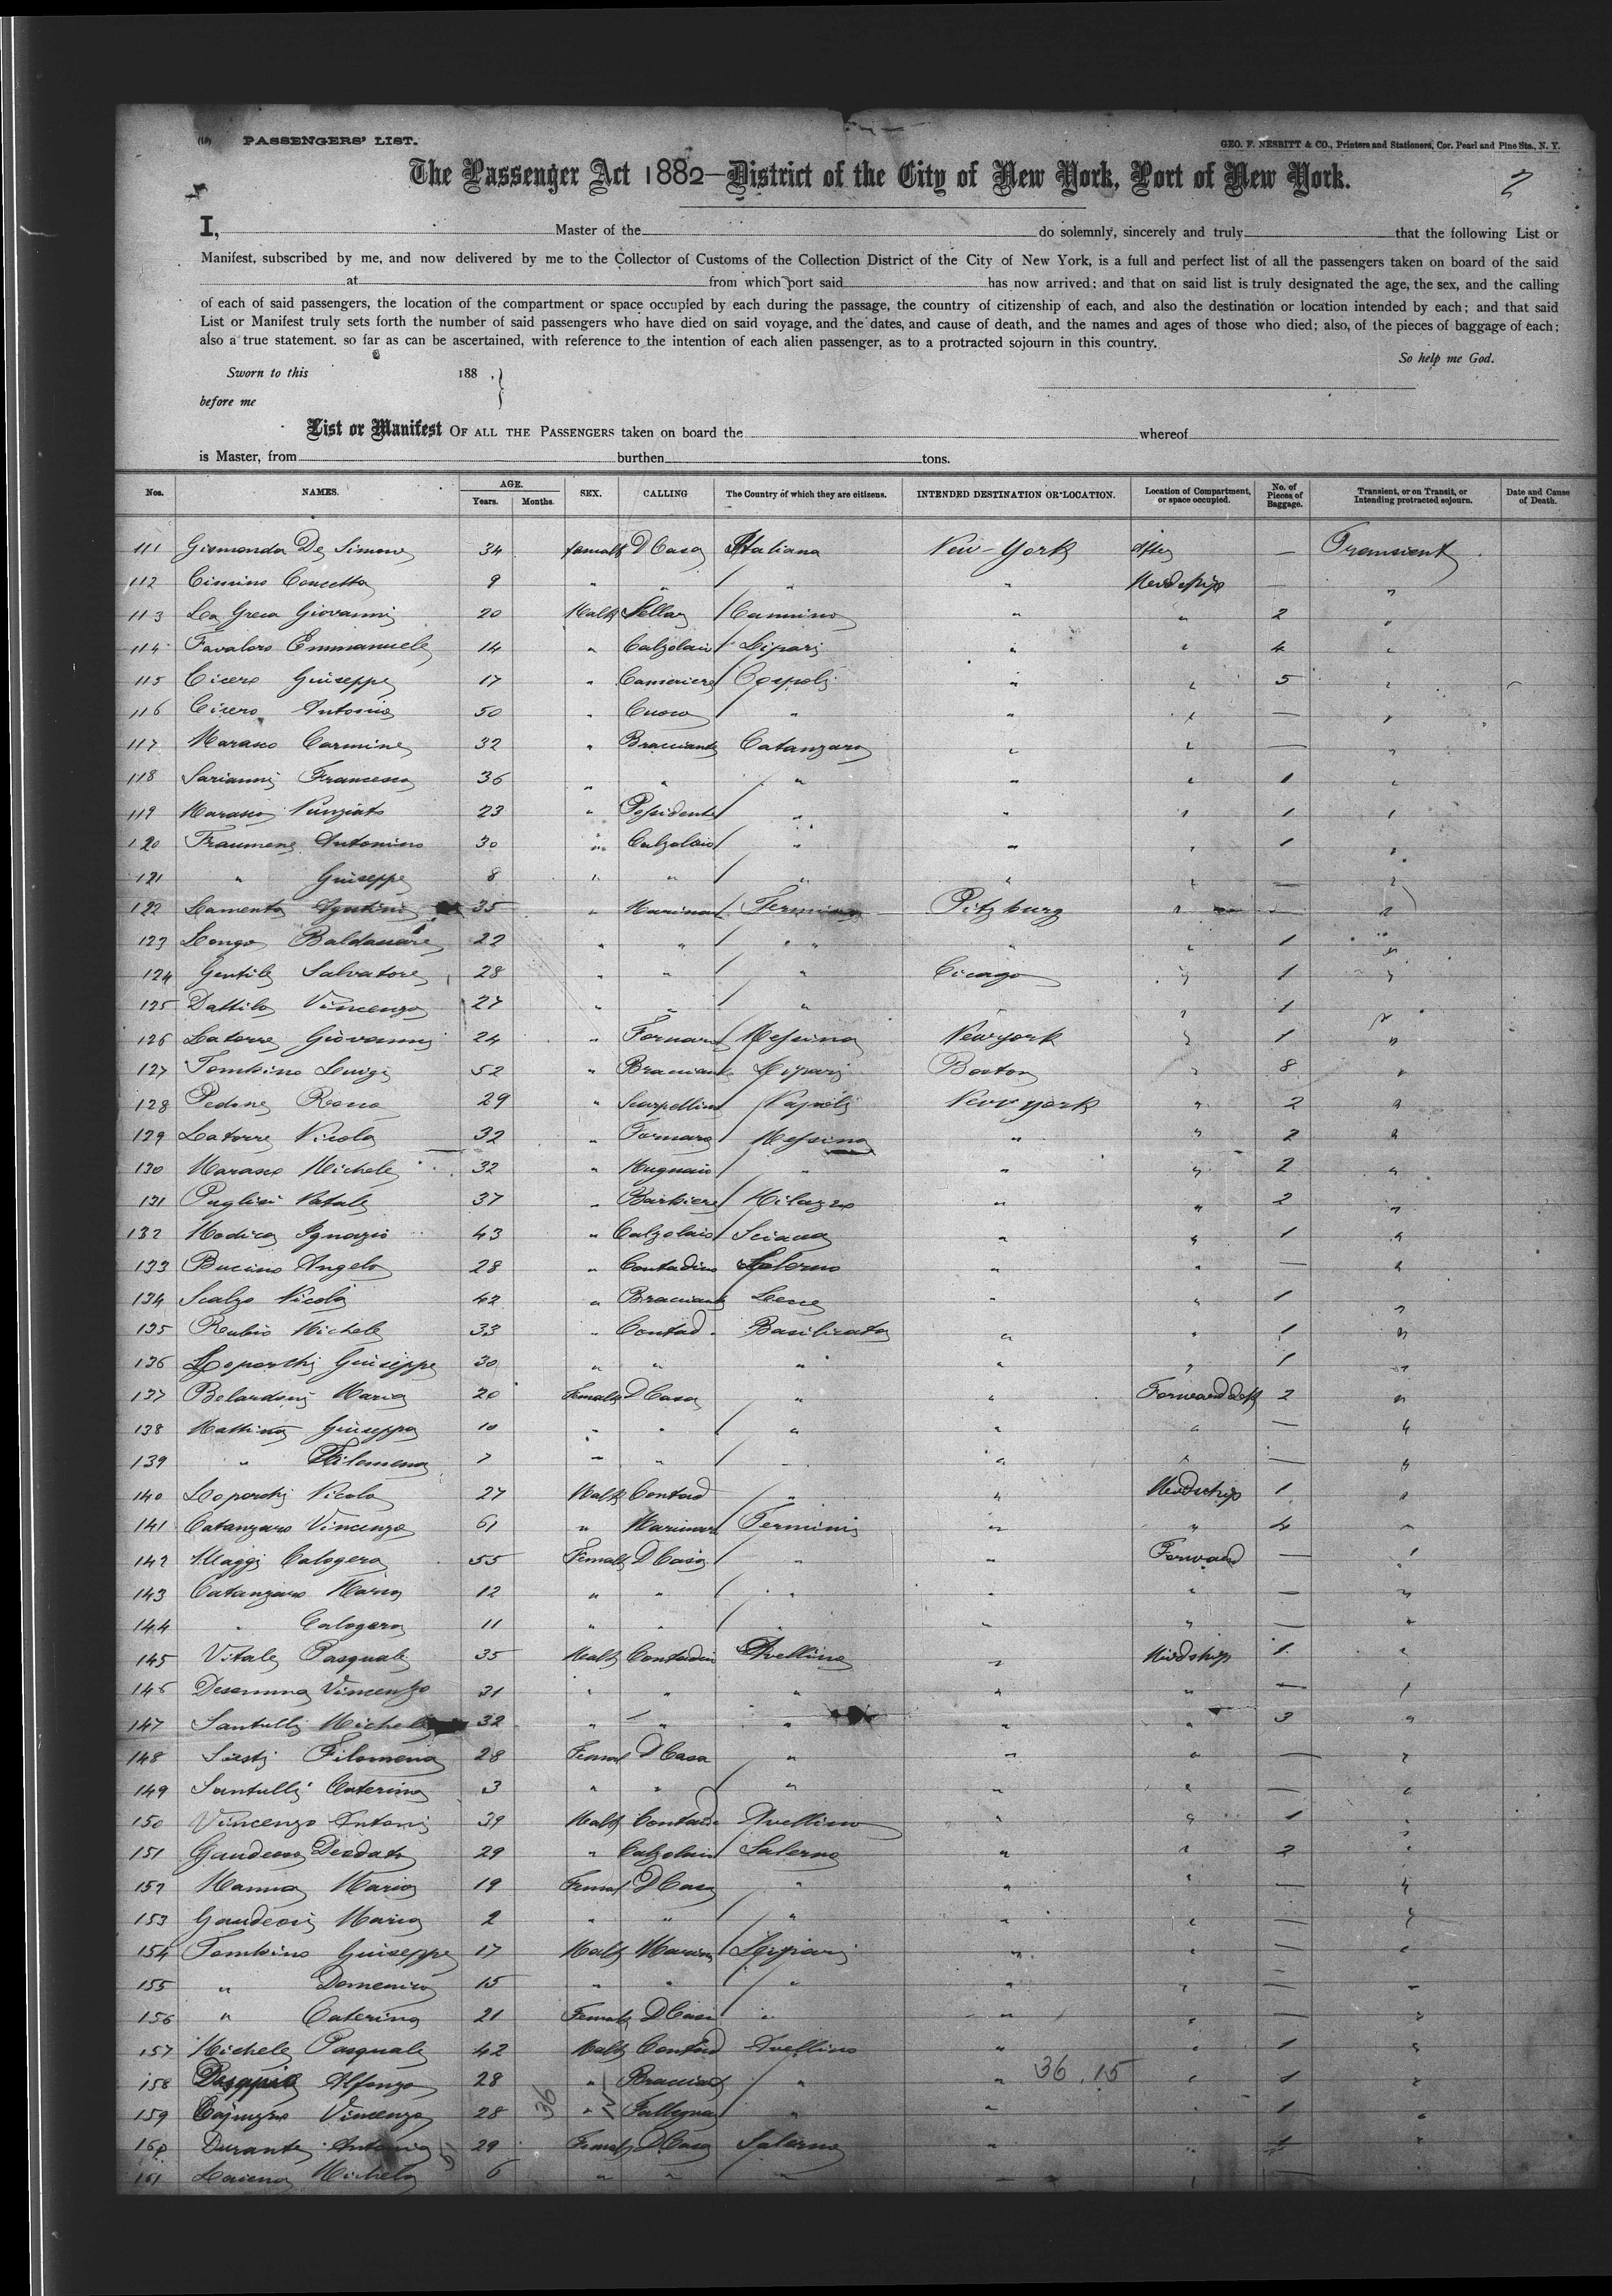 (1d) PASSENGERS' LIST.
GEO. F. NESBITT & CO., Printers and Stationers, Cor. Pearl and Pine Sts., N. Y.
The Passenger Act 1882—District of the City of New York, Port of New York.
I, Master of the do solemnly, sincerely and truly that the following List or
Manifest, subscribed by me, and now delivered by me to the Collector of Customs of the Collection District of the City of New York, is a full and perfect list of all the passengers taken on board of the said
at from which port said has now arrived; and that on said list is truly designated the age, the sex, and the calling
of each of said passengers, the location of the compartment or space occupied by each during the passage, the country of citizenship of each, and also the destination or location intended by each; and that said
List or Manifest truly sets forth the number of said passengers who have died on said voyage, and the dates, and cause of death, and the names and ages of those who died; also, of the pieces of baggage of each;
also a true statement, so far as can be ascertained, with reference to the intention of each alien passenger, as to a protracted sojourn in this country.
So help me God.
Sworn to this 188 .
before me
List or Manifest OF ALL THE PASSENGERS taken on board the whereof
is Master, from burthen tons.
Nos. NAMES. AGE. Years. Months. SEX. CALLING The Country of which they are citizens. INTENDED DESTINATION OR LOCATION. Location of Compartment, or space occupied. No. of Pieces of Baggage. Transient, or on Transit, or Intending protracted sojourn. Date and Cause of Death.
111 Gismonda De Simone 34 female D Casa Italiana New-York After — Transient
112 Cimino Concetta 9 " " " " Meedships — "
113 La Greca Giovanni 20 Male Cammino " " 2 "
114 Favaloro Emmanuele 14 " Calzolaio Lipari " " 4 "
115 Cicero Giuseppe 17 " Cameriere " " 5 "
116 Cicero Antonio 50 " Cuoco " " " — "
117 Marasco Carmine 32 " Bracciante Catanzaro " " — "
118 Sarianni Francesco 36 " " " " " 1 "
119 Marasco Nunziato 23 " Possidente " " " 1 "
120 Antonino 30 " Calzolaio " " " 1 "
121 " Giuseppe 8 " " " " " — "
122 Lamenta Agostino 35 " Marinar Termini Pitzburg " — "
123 Longo Baldassare 22 " " " " " 1 "
124 Gentile Salvatore 28 " " " Cicago " 1 "
125 Dattilo Vincenzo 27 " " " " " 1 "
126 Latorre Giovanni 24 " Fornaro Messina Newyork " 1 "
127 Tombino Luigi 52 " Bracciante Lipari Boston " 8 "
128 Pedone Rocco 29 " Scarpellino Napoli New york " 2 "
129 Latorre Nicola 32 " Fornaro Messina " " 2 "
130 Marasco Michele 32 " Mugnaio " " " 2 "
131 Puglisi Natale 37 " Barbiere Milazzo " " 2 "
132 Modica Ignazio 43 " Calzolaio Sciacca " " 1 "
133 Bucino Angelo 28 " Contadino Salerno " " — "
134 Scalzo Nicola 42 " Bracciante Lecce " " 1 "
135 Rubio Michele 33 " Contad. Basilicata " " 1 "
136 Loporchi Giuseppe 30 " " " " " 1 "
137 Belardoni Maria 20 Female D Casa " " Forward deck 2 "
138 Mattina Giuseppa 10 " " " " " — "
139 " Filomena 7 " " " " " — "
140 Loporchi Nicola 27 Male Contad " " Meedships 1 "
141 Catanzaro Vincenzo 61 " Marinaro Termini " " 4 "
142 Maggi Calogera 55 Female D Casa " " Forward — "
143 Catanzaro Maria 12 " " " " " — "
144 " Calogera 11 " " " " " — "
145 Vitale Pasquale 35 Male Contadin Avellino " Midships 1 "
146 Vincenzo 31 " " " " " — "
147 Santulli Michele 32 " " " " " 3 "
148 Filomena 28 Femal D Casa " " " — "
149 Santulli Caterina 3 " " " " " — "
150 Vincenzo Antonio 39 Male Contad Avellino " " 1 "
151 Gaudeosi Deodato 29 " Calzolaio Salerno " " 2 "
152 Manna Maria 19 Femal D Casa " " " — "
153 Gaudeosi Maria 2 " " " " " — "
154 Tombino Giuseppe 17 Male Marin Lipari " " — "
155 " Domenico 15 " " " " " — "
156 " Caterina 21 Female D Casa " " " — "
157 Michele Pasquale 42 Male Contad Avellino " " 1 "
158 Alfonzo 28 " Bracciant " " 36.15 " 1 "
159 Vincenzo 28 36 " Fallegna " " " 1 "
160 Durante Antonia 29 Female D Casa Salerno " " 1 "
161 Michela 6 " " " " " — "